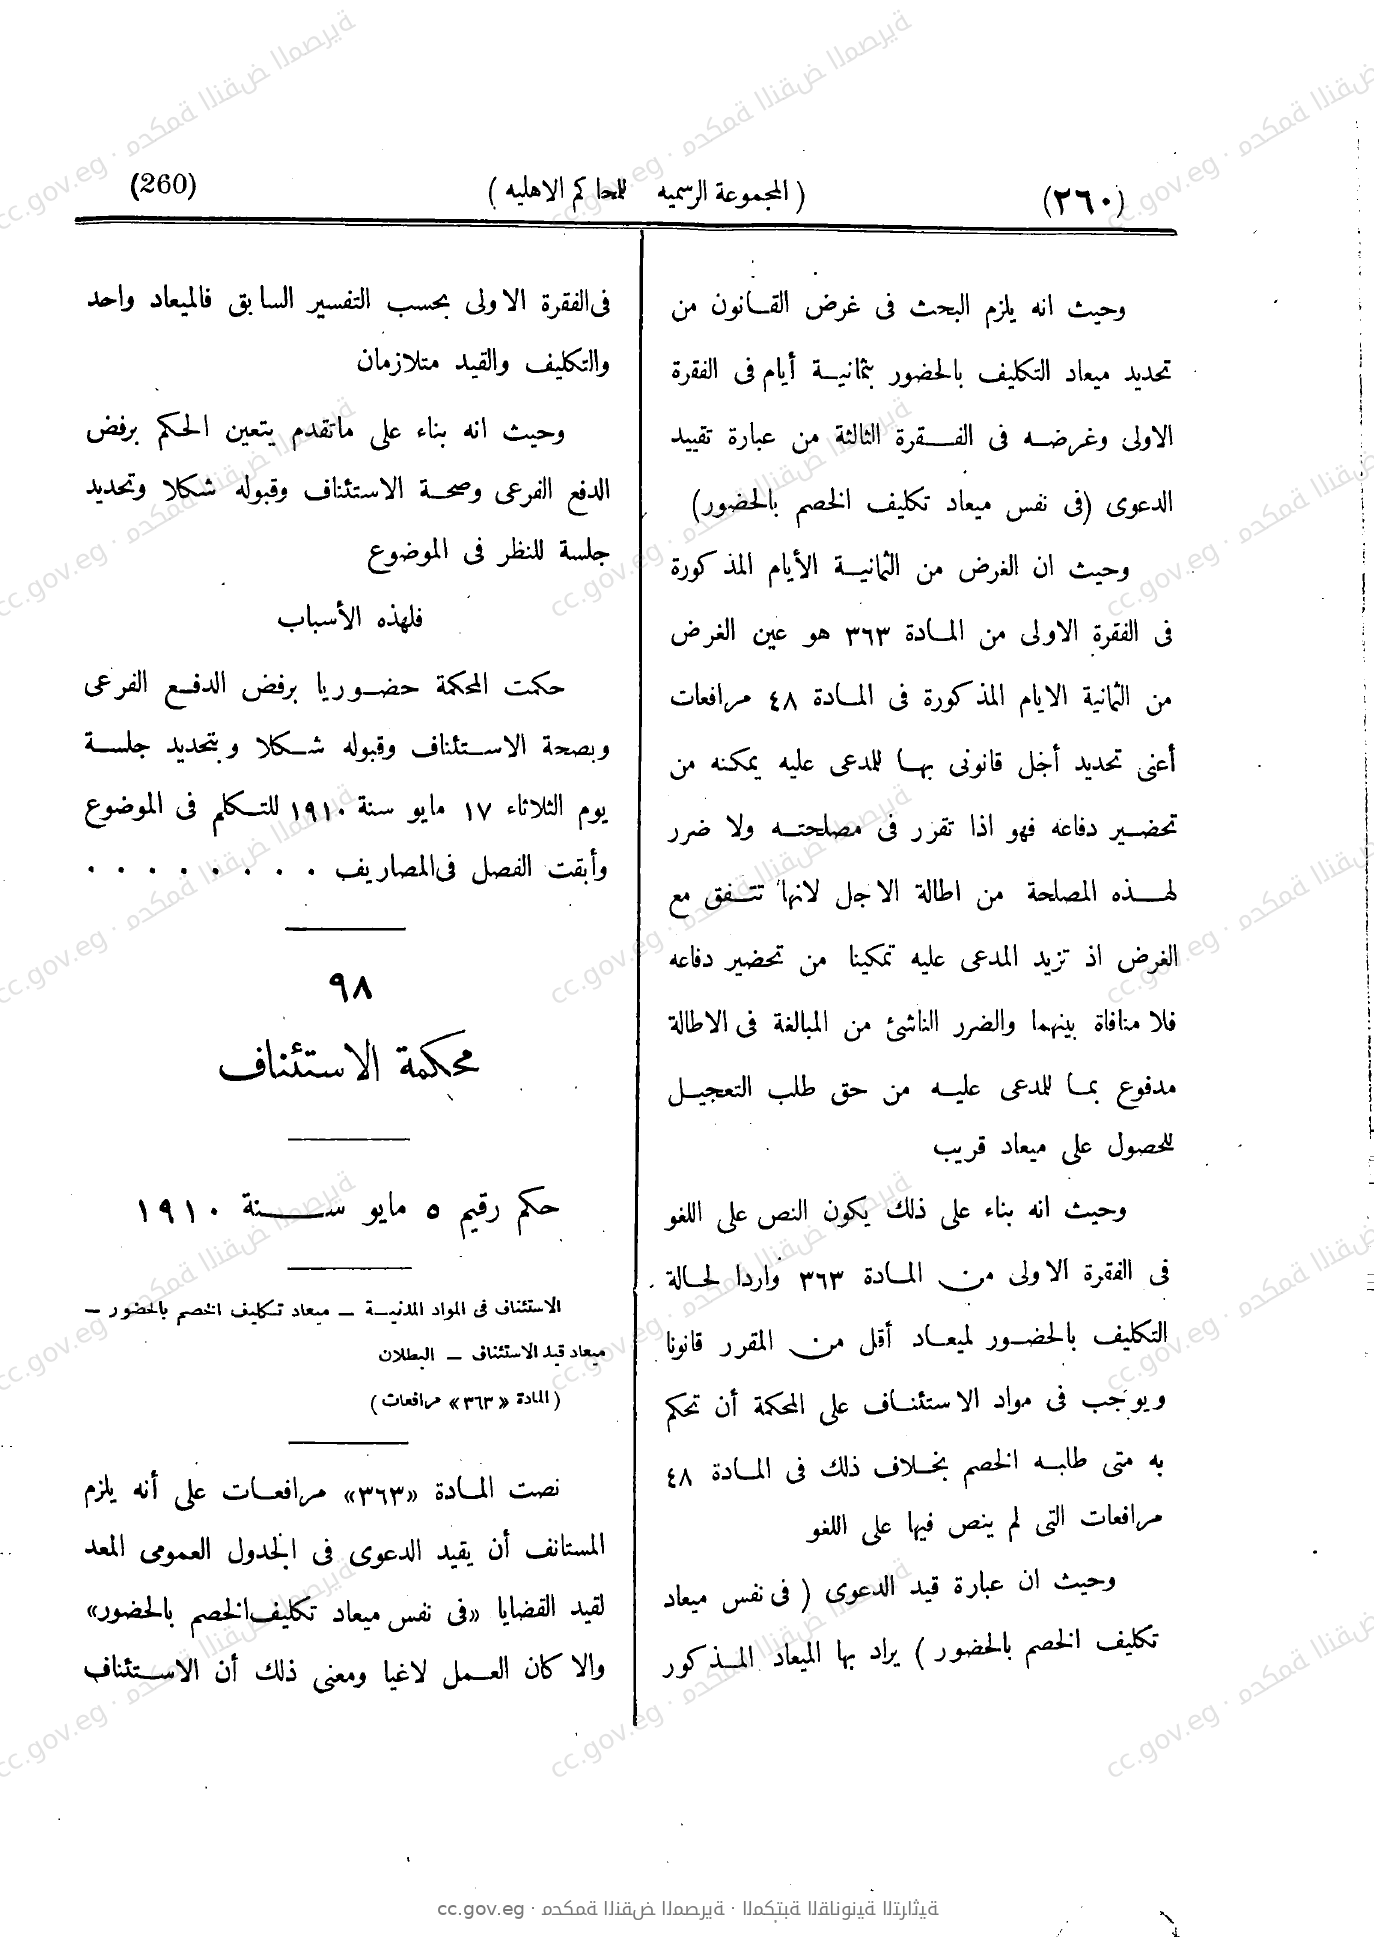 (٢٦٠)
( المجموعة الرسميه للمحاكم الاهليه )
(260)
وحيث انه يلزم البحث فى غرض القانون من
تحديد ميعاد التكليف بالحضور بثمانية أيام فى الفقرة
الاولى وغرضه فى الفقرة الثالثة من عبارة تقييد
الدعوى (فى نفس ميعاد تكليف الخصم بالحضور)
وحيث ان الغرض من الثمانية الأيام المذكورة
فى الفقرة الاولى من المادة ٣٦٣ هو عين الغرض
من الثمانية الايام المذكورة فى المادة ٤٨ مرافعات
أعنى تحديد أجل قانونى بها للمدعى عليه يمكنه من
تحضير دفاعه فهو اذا تقرر فى مصلحته ولا ضرر
لهذه المصلحة من اطالة الاجل لانها تتفق مع
الغرض اذ تزيد المدعى عليه تمكينا من تحضير دفاعه
فلا منافاة بينهما والضرر الناشئ من المبالغة فى الاطالة
مدفوع بما للمدعى عليه من حق طلب التعجيل
للحصول على ميعاد قريب
وحيث انه بناء على ذلك يكون النص على اللغو
فى الفقرة الاولى من المادة ٣٦٣ واردا لحالة
التكليف بالحضور لميعاد أقل من المقرر قانونا
ويوجب فى مواد الاستئناف على المحكمة أن تحكم
به متى طلبه الخصم بخلاف ذلك فى المادة ٤٨
مرافعات التى لم ينص فيها على اللغو
وحيث ان عبارة قيد الدعوى ( فى نفس ميعاد
تكليف الخصم بالحضور ) يراد بها الميعاد المذكور
فى الفقرة الاولى بحسب التفسير السابق فالميعاد واحد
والتكليف والقيد متلازمان
وحيث انه بناء على ماتقدم يتعين الحكم برفض
الدفع الفرعى وصحة الاستئناف وقبوله شكلا وتحديد
جلسة للنظر فى الموضوع
فلهذه الأسباب
حكمت المحكمة حضوريا برفض الدفع الفرعى
وبصحة الاستئناف وقبوله شكلا وبتحديد جلسة
يوم الثلاثاء ١٧ مايو سنة ١٩١٠ للتكلم فى الموضوع
وأبقت الفصل فى المصاريف . . . . . . . .
٩٨
محكمة الاستئناف
حكم رقيم ٥ مايو سنة ١٩١٠
الاستئناف فى المواد المدنية — ميعاد تكليف الخصم بالحضور —
ميعاد قيد الاستئناف — البطلان
( المادة «٣٦٣» مرافعات )
نصت المادة «٣٦٣» مرافعات على أنه يلزم
المستانف أن يقيد الدعوى فى الجدول العمومى المعد
لقيد القضايا «فى نفس ميعاد تكليف الخصم بالحضور»
والا كان العمل لاغيا ومعنى ذلك أن الاستئناف
cc.gov.eg · محكمة النقض المصرية · المكتبة القانونية التراثية